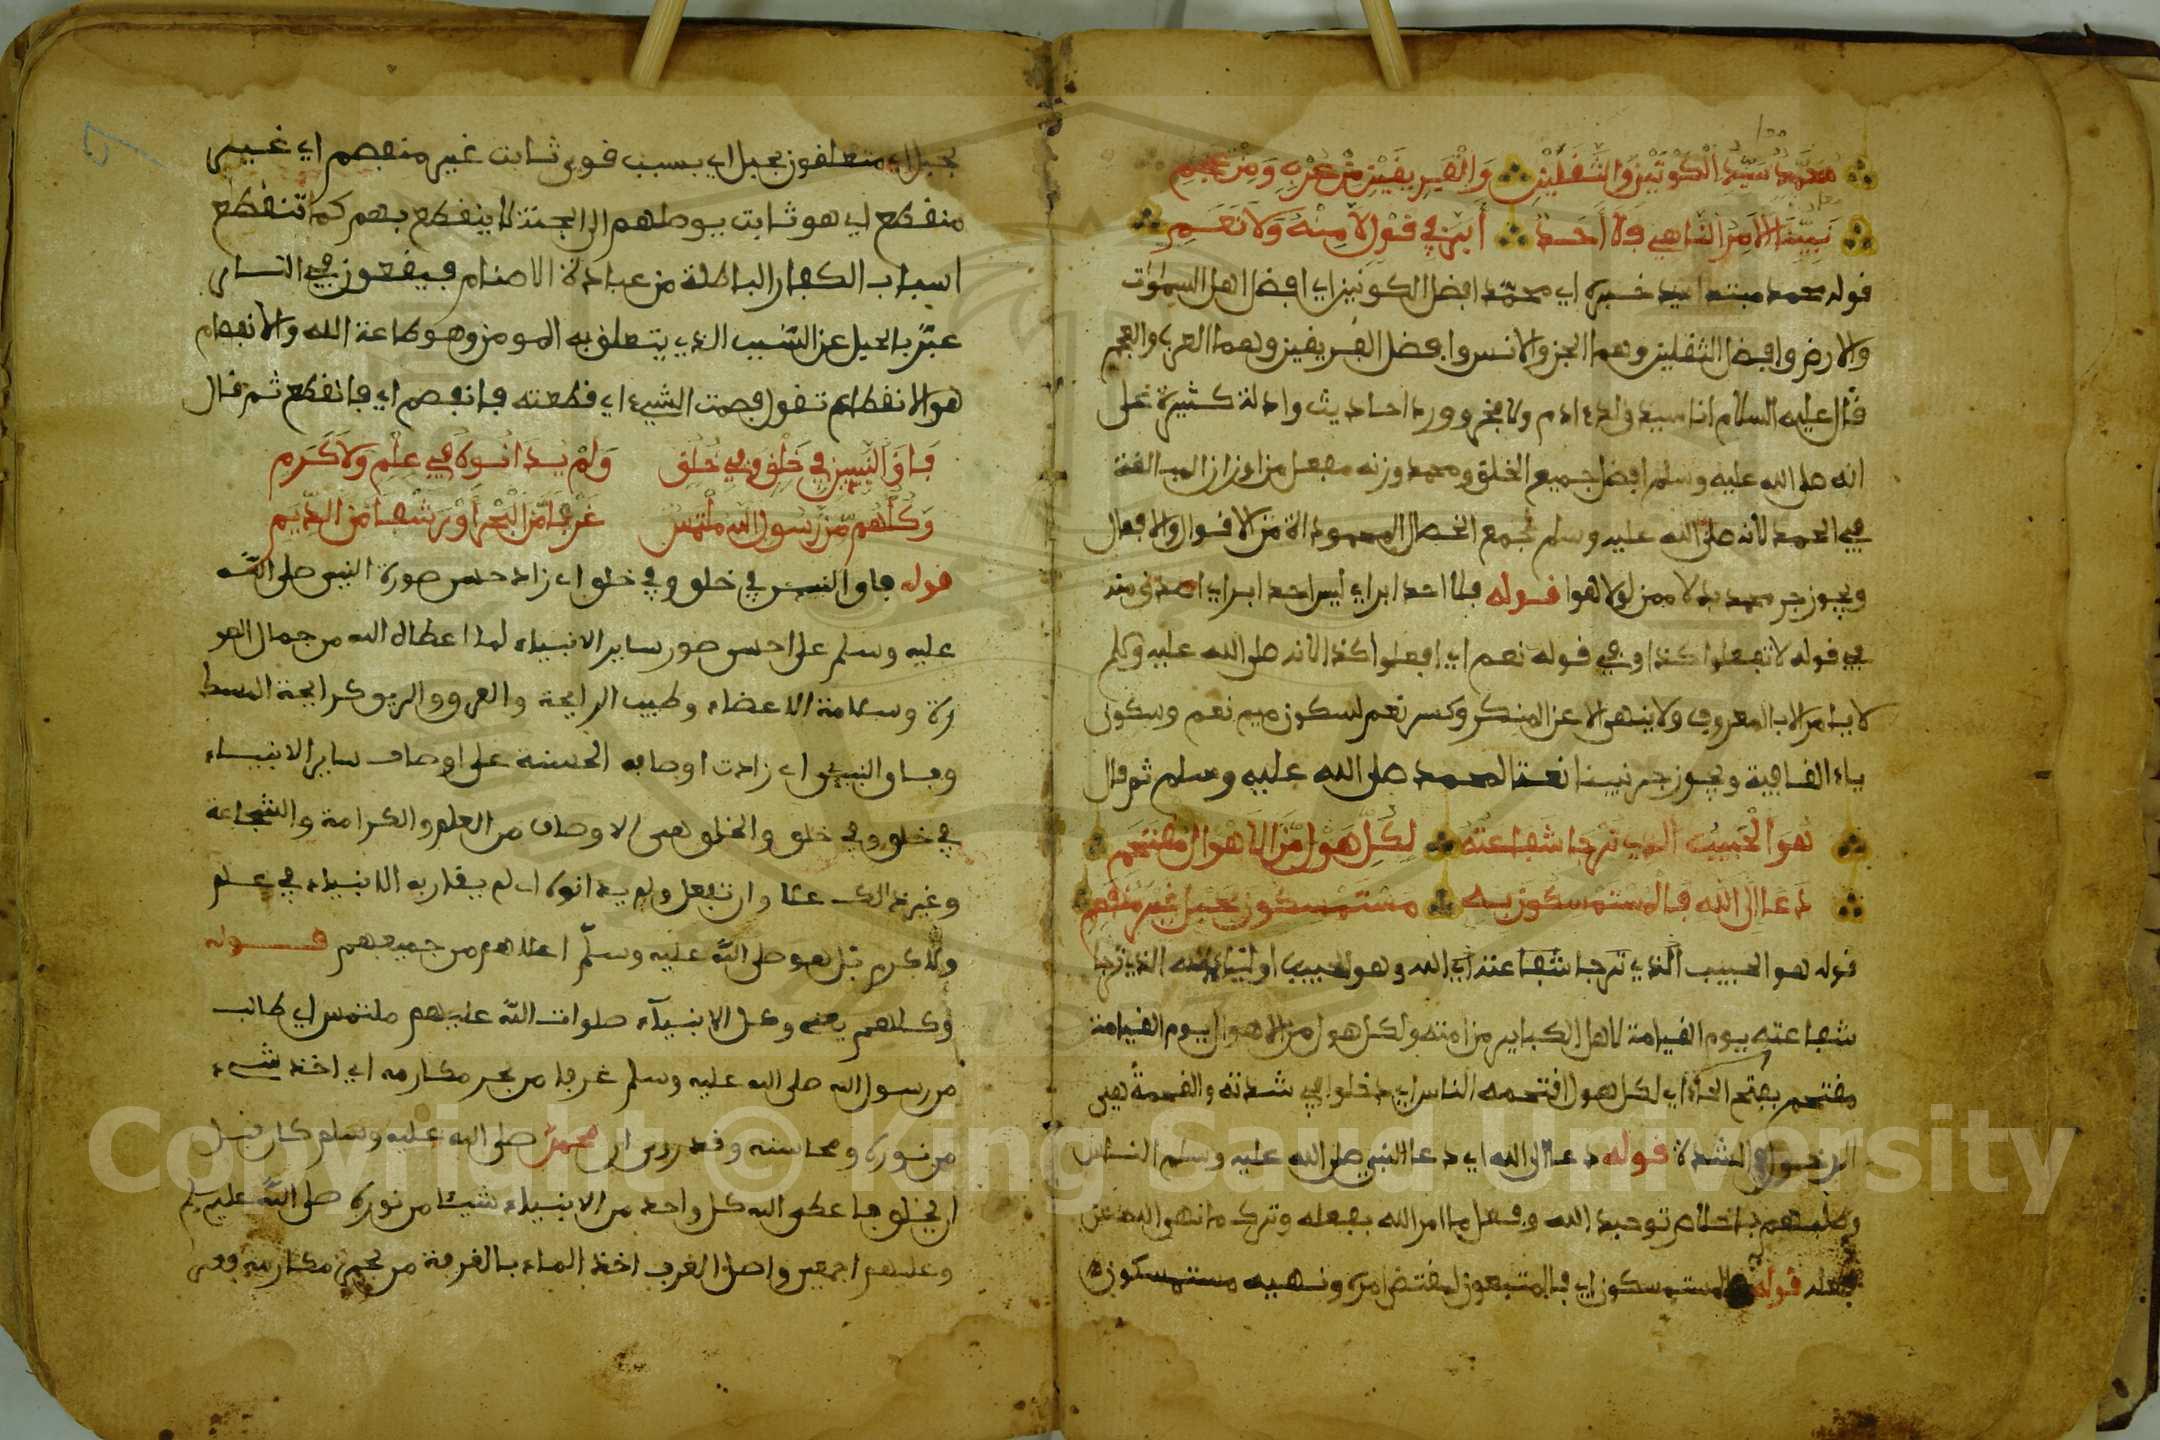 محمد سيد الكونين والثقلين والفريقين من عرب ومن عجم
نبينا الامر الناهي فلا أحد أبر في قول لا منه ولا نعم
قوله محمد مبتدا سيد خبره اي محمد افضل الكونين اي افضل اهل السموات
والارض وافضل الثقلين وهم الجن والانس وافضل الفريقين وهما العرب والعجم
قال عليه السلام انا سيد ولد ءادم ولا فخر وورد احاديث وادلة كثيرة على
انه صلى الله عليه وسلم افضل جميع الخلق ومحمد وزنه مفعل من اوزان المبالغة
في الحمد لانه صلى الله عليه وسلم مجمع الخصال المحمودة من الاقوال والافعال
ويجوز جر محمد بدلا ممن لولا هوا قوله فلا احد ابر اي ليس احد ابر اي اصدق منه
في قوله لا تفعلوا كذا وفي قوله نعم اي افعلوا كذا لانه صلى الله عليه وسلم
لا يامر الا بالمعروف ولا ينهى الا عن المنكر وكسر نعم لسكون ميم نعم وسكون
ياء القافية ويجوز جر نبينا نعتا لمحمد صلى الله عليه وسلم ثم قال
هو الحبيب الذي ترجا شفاعته لكل هول من الاهوال مقتحم
دعا الى الله فالمستمسكون به مستمسكون بحبل غير منفصم
قوله هو الحبيب الذي ترجا شفاعته اي الله وهو الحبيب الذي ترجا
شفاعته يوم القيامة لاهل الكباير من امته ولكل هول من الاهوال يوم القيامة
مقتحم بفتح الحاء اي لكل هول اقتحمه الناس اي دخلوا في شدته والقحمة هي
الدخول والشدة قوله دعا الى الله اي دعا النبي صلى الله عليه وسلم الناس
وطلبهم باخلاص توحيد الله وفعل ما امر الله بفعله وترك ما نهى الله عن
فعله قوله فالمستمسكون اي فالمتبعون لمقتضى امره ونهيه مستمسكون
بحبل اي متعلقون بحبل اي بسبب قوي ثابت غير منفصم اي غير
منقطع اي هو ثابت يوصلهم الى الجنة لا ينقطع بهم كما تنقطع
اسباب الكفار الباطلة من عبادة الاصنام فيقعون في النار
عبر بالحبل عن السبب الذي يتعلق به المومن وهو طاعة الله والانفصام
هو الانقطاع تقول فصمت الشيء اي قطعته فانفصم اي فانقطع ثم قال
فاق النبيين في خلق وفي خلق ولم يدانوه في علم ولا كرم
وكلهم من رسول الله ملتمس غرفا من البحر أو رشفا من الديم
قوله فاق النبيين في خلق وفي خلق اي زاد حسن صورة النبي صلى الله
عليه وسلم على احسن صور ساير الانبياء لما اعطاه الله من جمال الصو
رة وسلامة الاعضاء وطيب الرايحة والعرق والريق كرايحة المسك
وفاق النبيين اي زادت اوصافه الحسنة على اوصاف ساير الانبياء
في خلق وفي خلق والخلق هي الاوصاف من العلم والكرامة والشجاعة
وغير ذالك ولم يدانوه اي لم يقاربه الانبياء في علم
ولا كرم بل هو صلى الله عليه وسلم اعلاهم من جميعهم قوله
وكلهم يعني وكل الانبياء صلوات الله عليهم ملتمس اي طالب
من رسول الله صلى الله عليه وسلم غرفا من بحر مكارمه اي اخذ شيء
من نوره ومحاسنه وقد روي ان محمدا صلى الله عليه وسلم كان قبل
ان يخلق فاعطى الله كل واحد من الانبياء شيئا من نوره صلى الله عليه وسلم
وعليهم اجمعين واصل الغرف اخذ الماء بالغرفة من بحر مكارمه